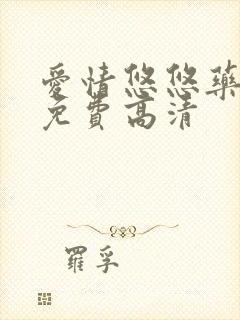 愛情悠悠藥
免費高清
羅孚